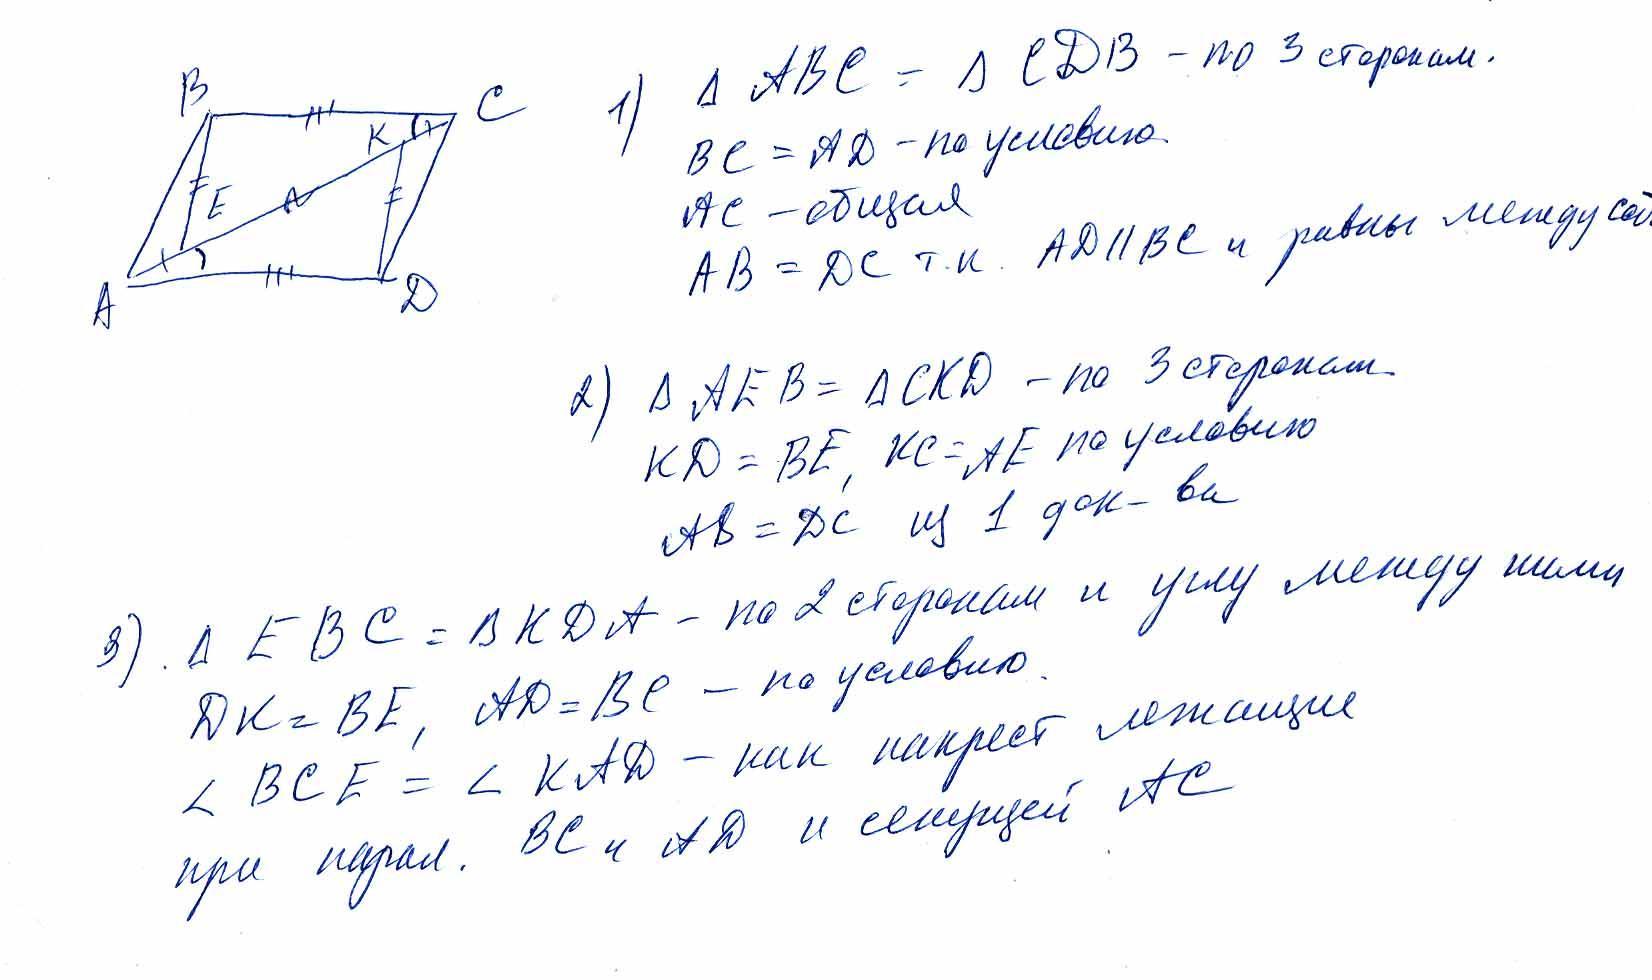 B
C
K
E
A
D
1) Δ ABC = Δ CDB - по 3 сторонам.
BC = AD - по условию
AC - общая
AB = DC т.к. AD || BC и равны между соб
2) Δ AEB = Δ CKD - по 3 сторонам
KD = BE, KC = AE по условию
AB = DC из 1 док-ва
3). Δ EBC = Δ KDA - по 2 сторонам и углу между ними
DK = BE, AD = BC - по условию.
∠ BCE = ∠ KAD - как накрест лежащие
при парал. BC и AD и секущей AC